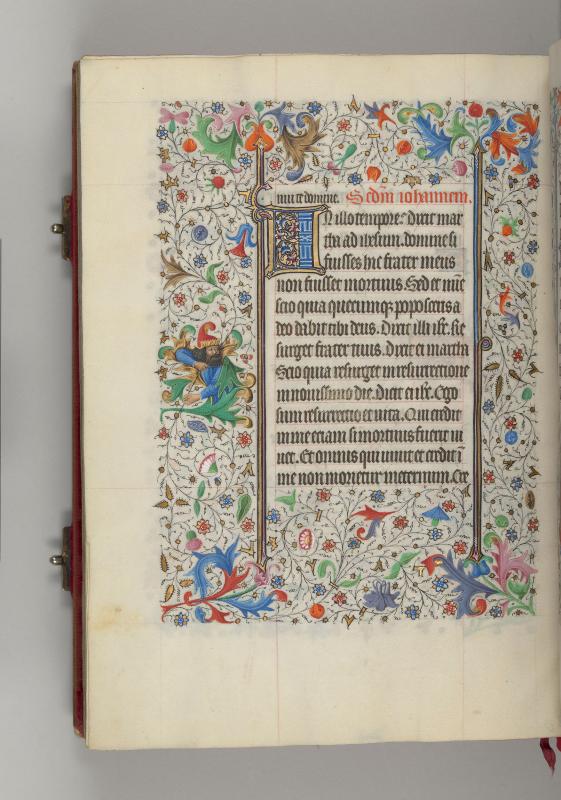 mini et domine. Scdm iohannem.
In illo tempore: dixit mar
tha ad ihesum. domine si
fuisses hic frater meus
non fuisset mortuus. Sed et nūc
scio quia quecumqꝫ poposceris a
deo dabit tibi deus. Dixit illi ihc. Re
surget frater tuus. Dixit ei martha
Scio quia resurget in resurrectione
in nouissimo die. dicit ei ihc. Ego
sum resurrectio et uita. Qui credit
in me etiam si mortuus fuerit ui
uet. Et omnis qui uiuit et credit ī
me non morietur in eternum. Cre